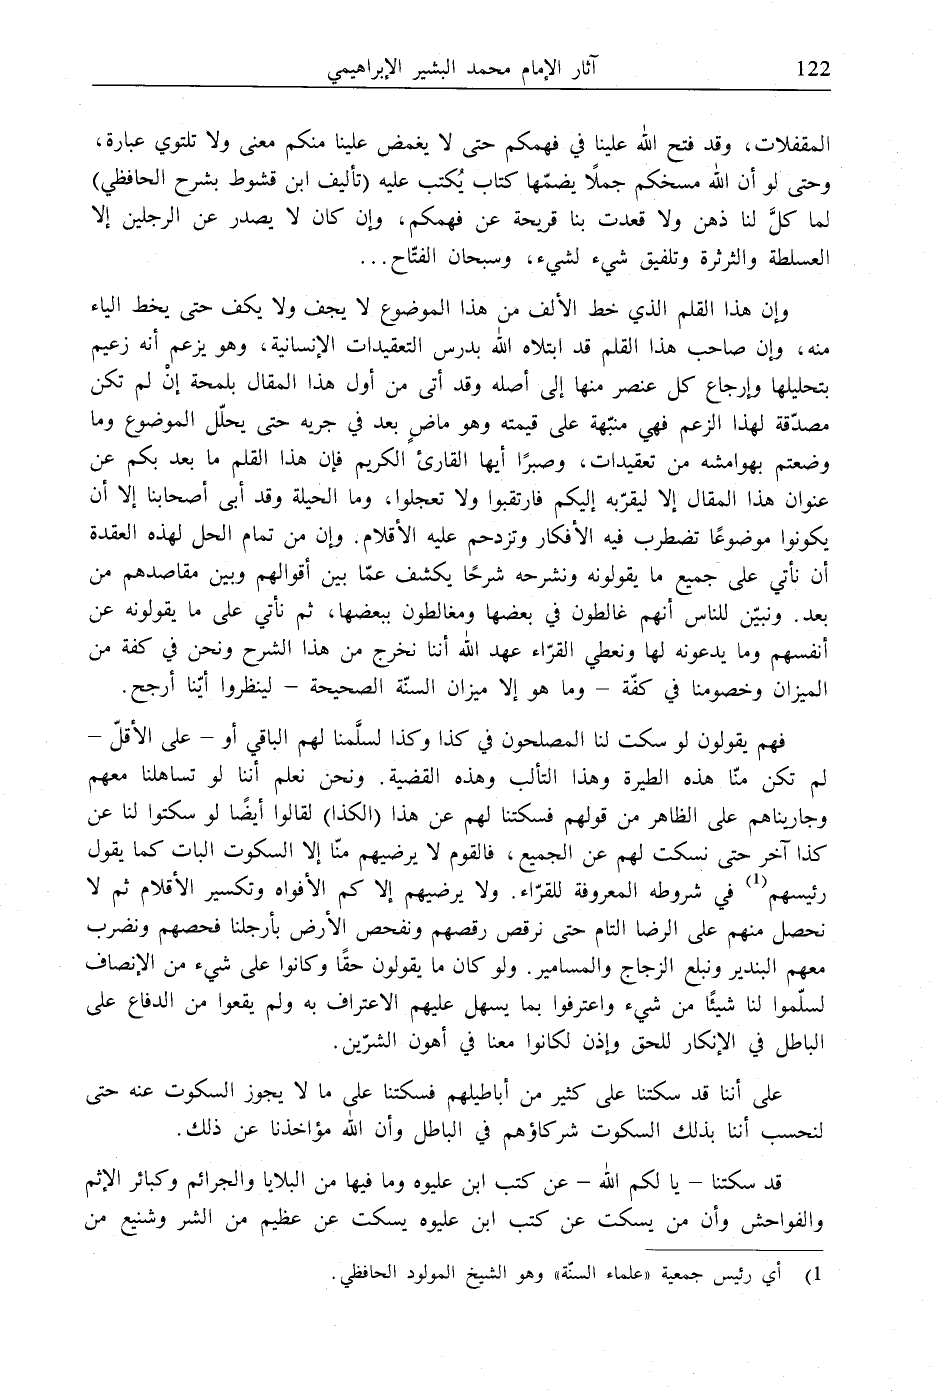 122 آثار الإمام محمد البشير الإبراهيمي
المقفلات، وقد فتح الله علينا في فهمكم حتى لا يغمض علينا منكم معنى ولا تلتوي عبارة،
وحتى لو أن الله مسخكم جملًا يضمّها كتاب يُكتب عليه (تأليف ابن قشوط بشرح الحافظي)
لما كلَّ لنا ذهن ولا قعدت بنا قريحة عن فهمكم، وإن كان لا يصدر عن الرجلين إلا
العسلطة والثرثرة وتلفيق شيء لشيء، وسبحان الفتّاح...
وإن هذا القلم الذي خط الألف من هذا الموضوع لا يجف ولا يكف حتى يخط الياء
منه، وإن صاحب هذا القلم قد ابتلاه الله بدرس التعقيدات الإنسانية، وهو يزعم أنه زعيم
بتحليلها وإرجاع كل عنصر منها إلى أصله وقد أتى من أول هذا المقال بلمحة إنْ لم تكن
مصدّقة لهذا الزعم فهي منبّهة على قيمته وهو ماضٍ بعد في جريه حتى يحلّل الموضوع وما
وضعتم بهوامشه من تعقيدات، وصبرًا أيها القارئ الكريم فإن هذا القلم ما بعد بكم عن
عنوان هذا المقال إلا ليقرّبه إليكم فارتقبوا ولا تعجلوا، وما الحيلة وقد أبى أصحابنا إلا أن
يكونوا موضوعًا تضطرب فيه الأفكار وتزدحم عليه الأقلام. وإن من تمام الحل لهذه العقدة
أن نأتي على جميع ما يقولونه ونشرحه شرحًا يكشف عمّا بين أقوالهم وبين مقاصدهم من
بعد. ونبيّن للناس أنهم غالطون في بعضها ومغالطون ببعضها، ثم نأتي على ما يقولونه عن
أنفسهم وما يدعونه لها ونعطي القرّاء عهد الله أننا نخرج من هذا الشرح ونحن في كفة من
الميزان وخصومنا في كفّة – وما هو إلا ميزان السنّة الصحيحة – لينظروا أيّنا أرجح.
فهم يقولون لو سكت لنا المصلحون في كذا وكذا لسلَّمنا لهم الباقي أو – على الأقلّ –
لم تكن منّا هذه الطيرة وهذا التألب وهذه القضية. ونحن نعلم أننا لو تساهلنا معهم
وجاريناهم على الظاهر من قولهم فسكتنا لهم عن هذا (الكذا) لقالوا أيضًا لو سكتوا لنا عن
كذا آخر حتى نسكت لهم عن الجميع، فالقوم لا يرضيهم منّا إلا السكوت البات كما يقول
رئيسهم(1) في شروطه المعروفة للقرّاء. ولا يرضيهم إلا كم الأفواه وتكسير الأقلام ثم لا
نحصل منهم على الرضا التام حتى نرقص رقصهم ونفحص الأرض بأرجلنا فحصهم ونضرب
معهم البندير ونبلع الزجاج والمسامير. ولو كان ما يقولون حقًا وكانوا على شيء من الإنصاف
لسلّموا لنا شيئًا من شيء واعترفوا بما يسهل عليهم الاعتراف به ولم يقعوا من الدفاع على
الباطل في الإنكار للحق وإذن لكانوا معنا في أهون الشرّين.
على أننا قد سكتنا على كثير من أباطيلهم فسكتنا على ما لا يجوز السكوت عنه حتى
لنحسب أننا بذلك السكوت شركاؤهم في الباطل وأن الله مؤاخذنا عن ذلك.
قد سكتنا – يا لكم الله – عن كتب ابن عليوه وما فيها من البلايا والجرائم وكبائر الإثم
والفواحش وأن من يسكت عن كتب ابن عليوه يسكت عن عظيم من الشر وشنيع من
1) أي رئيس جمعية «علماء السنّة» وهو الشيخ المولود الحافظي.